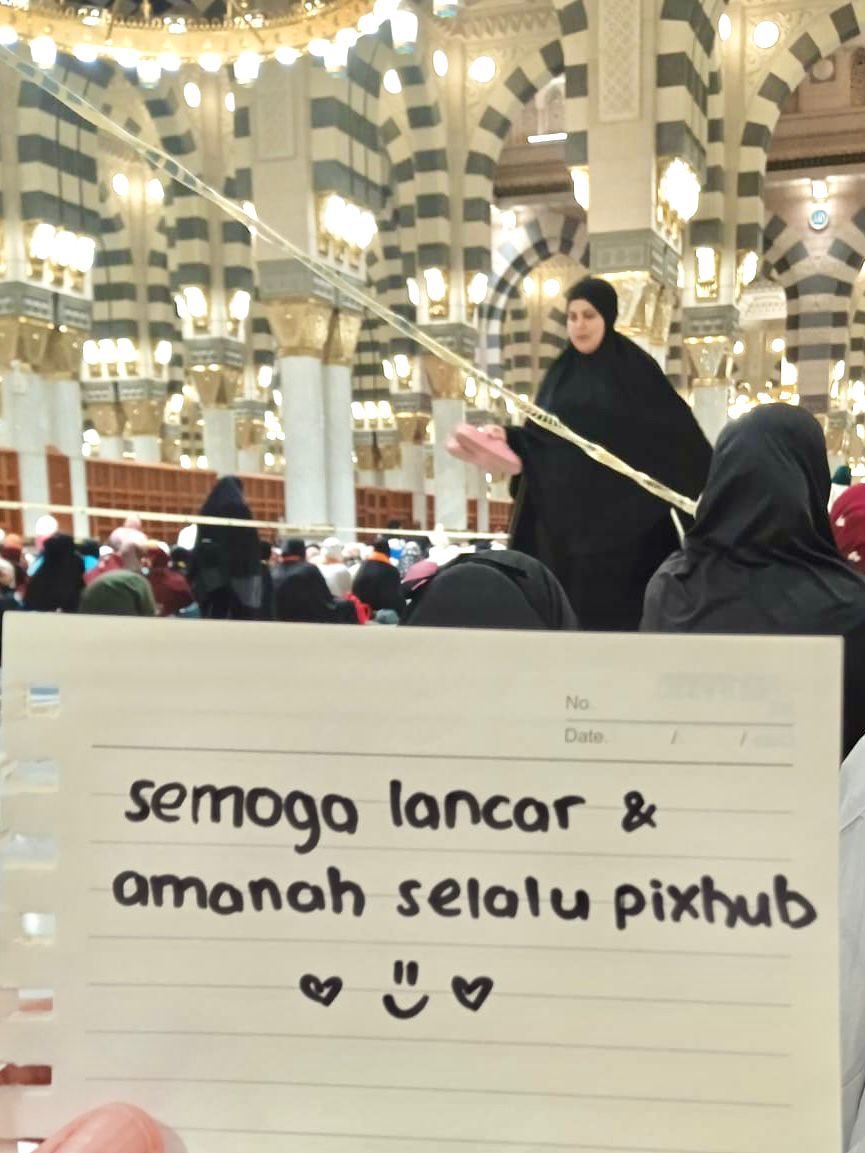 No.
Date. / /
semoga lancar &
amanah selalu pixhub